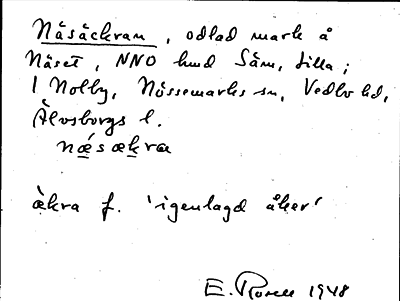 Näsäckran, odlad mark å
Näset, NNO hmd Säm, Lilla;
1 Nolby, Nössemarks sn, Vedbo hd,
Älvsborgs l.
næsækra
ækra f. 'igenlagd åker'
E. Rosell 1948